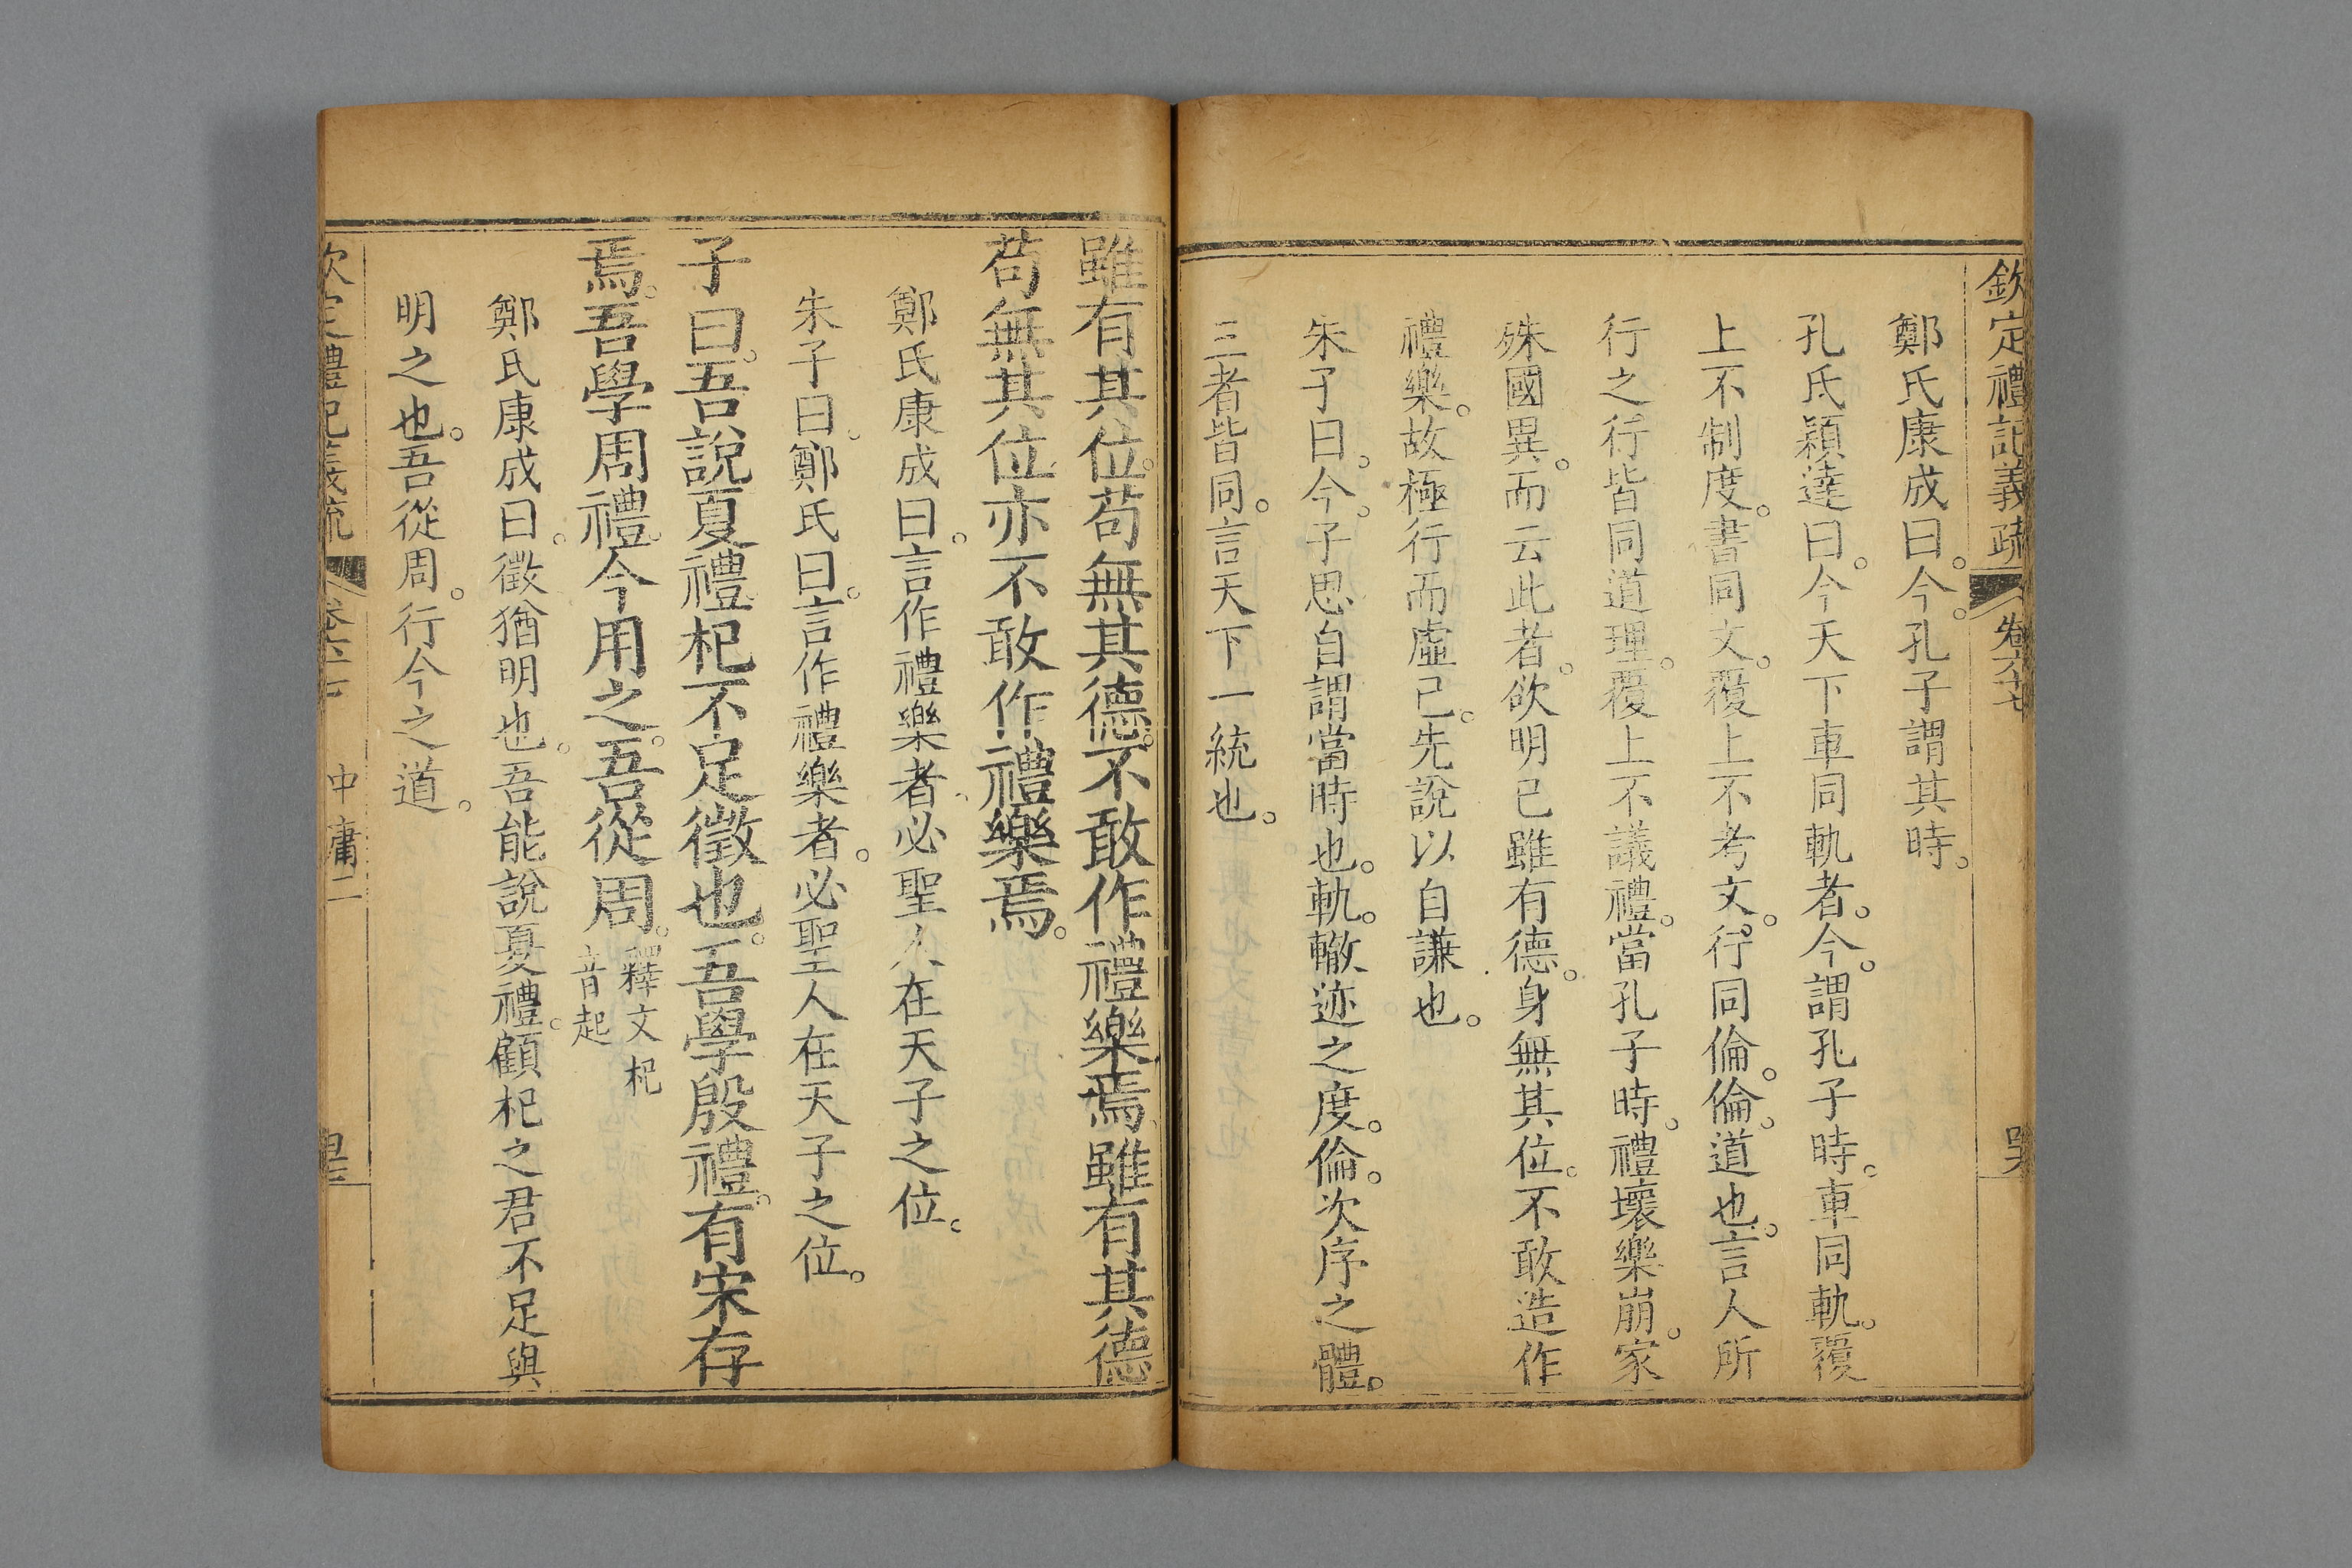 欽定禮記義疏 卷六十七
鄭氏康成曰。今。孔子謂其時。
孔氏穎達曰。今天下車同軌者。今。謂孔子時。車同軌。覆
上不制度。書同文。覆上不考文。行同倫。倫。道也。言人所
行之行皆同道理。覆上不議禮。當孔子時。禮壞樂崩。家
殊國異。而云此者。欲明己雖有德。身無其位。不敢造作
禮樂。故極行而虛己。先說以自謙也。
朱子曰。今。子思自謂當時也。軌。轍迹之度。倫。次序之體。
三者皆同。言天下一統也。
雖有其位。苟無其德。不敢作禮樂焉。雖有其德
苟無其位。亦不敢作禮樂焉。
鄭氏康成曰。言作禮樂者。必聖人在天子之位。
朱子曰。鄭氏曰。言作禮樂者。必聖人在天子之位。
子曰。吾說夏禮。杞不足徵也。吾學殷禮。有宋存
焉。吾學周禮。今用之。吾從周。釋文杞音起
鄭氏康成曰。徵。猶明也。吾能說夏禮。顧杞之君不足與
明之也。吾從周。行今之道。
欽定禮記義疏 卷六十七 中庸二